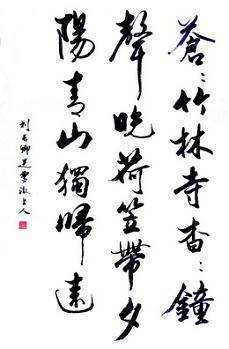 蒼〻竹林寺杳〻鐘
聲晚荷笠帶夕
陽青山獨歸遠
刘长卿送靈澈上人